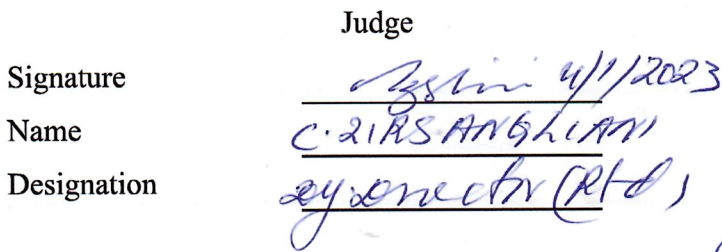 Judge
Signature 4/1/2023
Name C. ZIRSANGLIANI
Designation Dy. Director (Rtd)